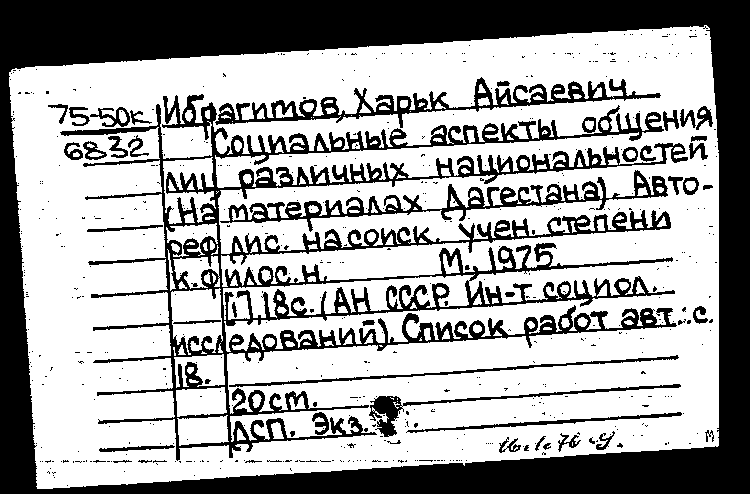 75-50к Ибрагимов, Харьк Айсаевич.
6832 Социальные аспекты общения
лиц различных национальностей
(На материалах Дагестана). Авто-
реф дис. на соиск. учен. степени
к.филос.н. М., 1975.
[1], 18с. (АН СССР. Ин-т социол.
исследований). Список работ авт.: с.
18.
20см.
ДСП. Экз.
М